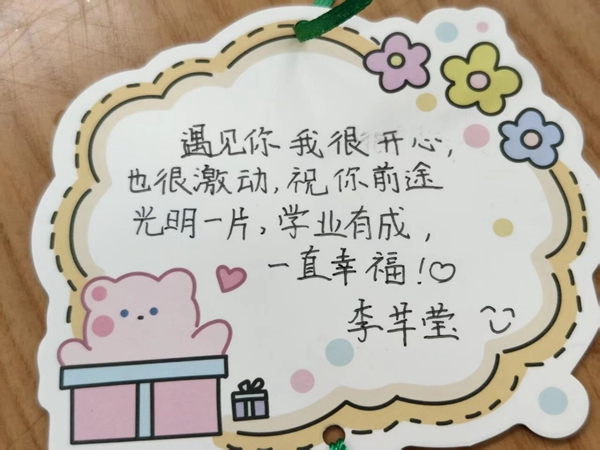 遇见你我很开心，
也很激动，祝你前途
光明一片，学业有成，
一直幸福！♡
李芊莹